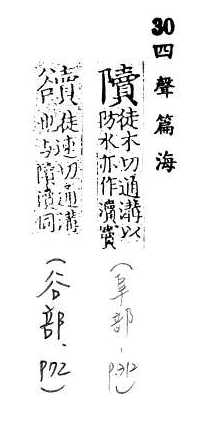 30四聲篇海
隫徒木切通溝以
防水亦作瀆
(阜部.P.312)
豄徒速切通溝
也与瀆同
(谷部.P72)